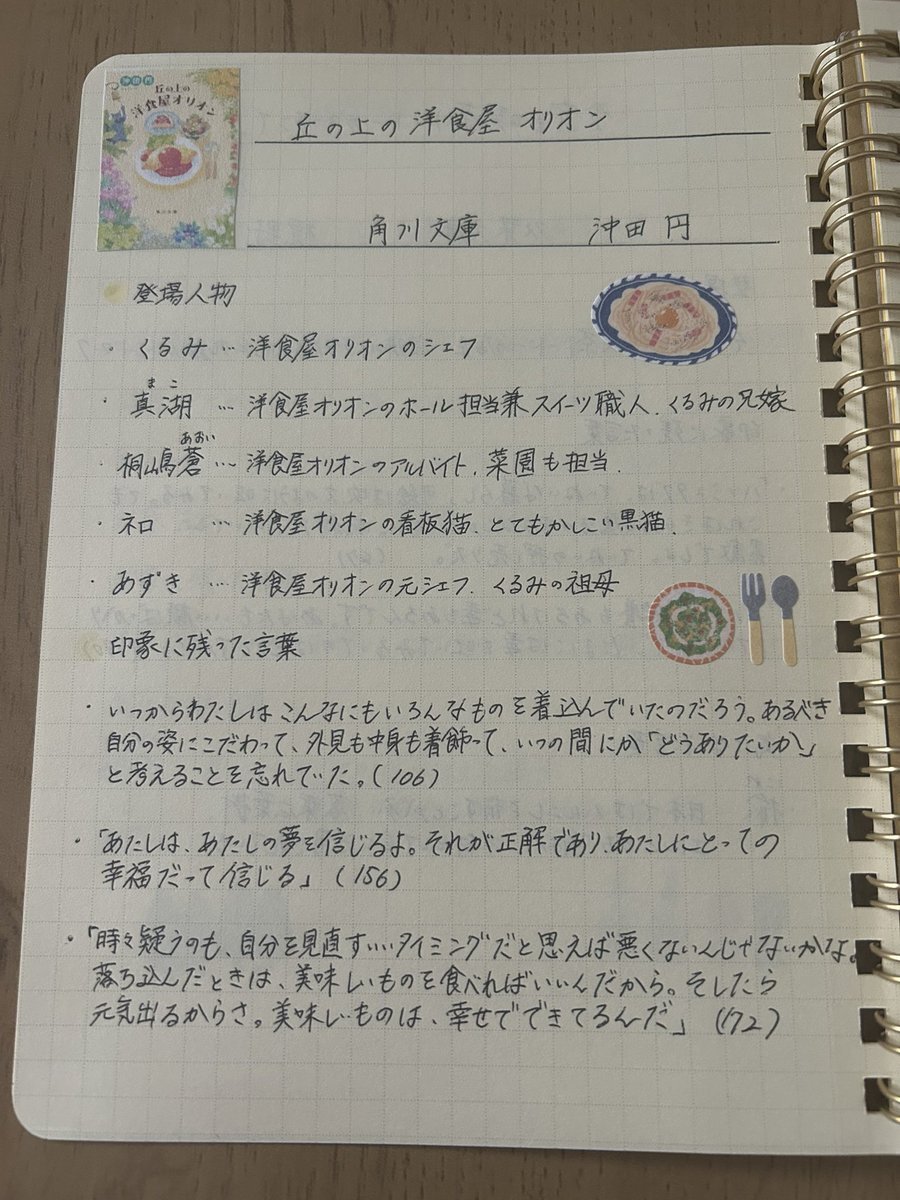 沖田円
丘の上の
洋食屋オリオン
角川文庫
丘の上の洋食屋 オリオン
角川文庫 沖田 円
登場人物
・くるみ … 洋食屋オリオンのシェフ
まこ
・真湖 … 洋食屋オリオンのホール担当兼スイーツ職人、くるみの兄嫁
あおい
・桐嶋蒼 … 洋食屋オリオンのアルバイト、菜園も担当、
・ネロ … 洋食屋オリオンの看板猫、とてもかしこい黒猫、
・あずき … 洋食屋オリオンの元シェフ、くるみの祖母
印象に残った言葉
・いつからわたしはこんなにもいろんなものを着込んでいたのだろう。あるべき
自分の姿にこだわって、外見も中身も着飾って、いつの間にか「どうありたいか」
と考えることを忘れていた。(106)
・「あたしは、あたしの夢を信じるよ。それが正解であり、あたしにとっての
幸福だって信じる」(156)
・「時々疑うのも、自分を見直すいいタイミングだと思えば悪くないんじゃないかなよ。
落ち込んだときは、美味しいものを食べればいいんだから。そしたら
元気出るからさ。美味しいものは、幸せでできてるんだ」(172)